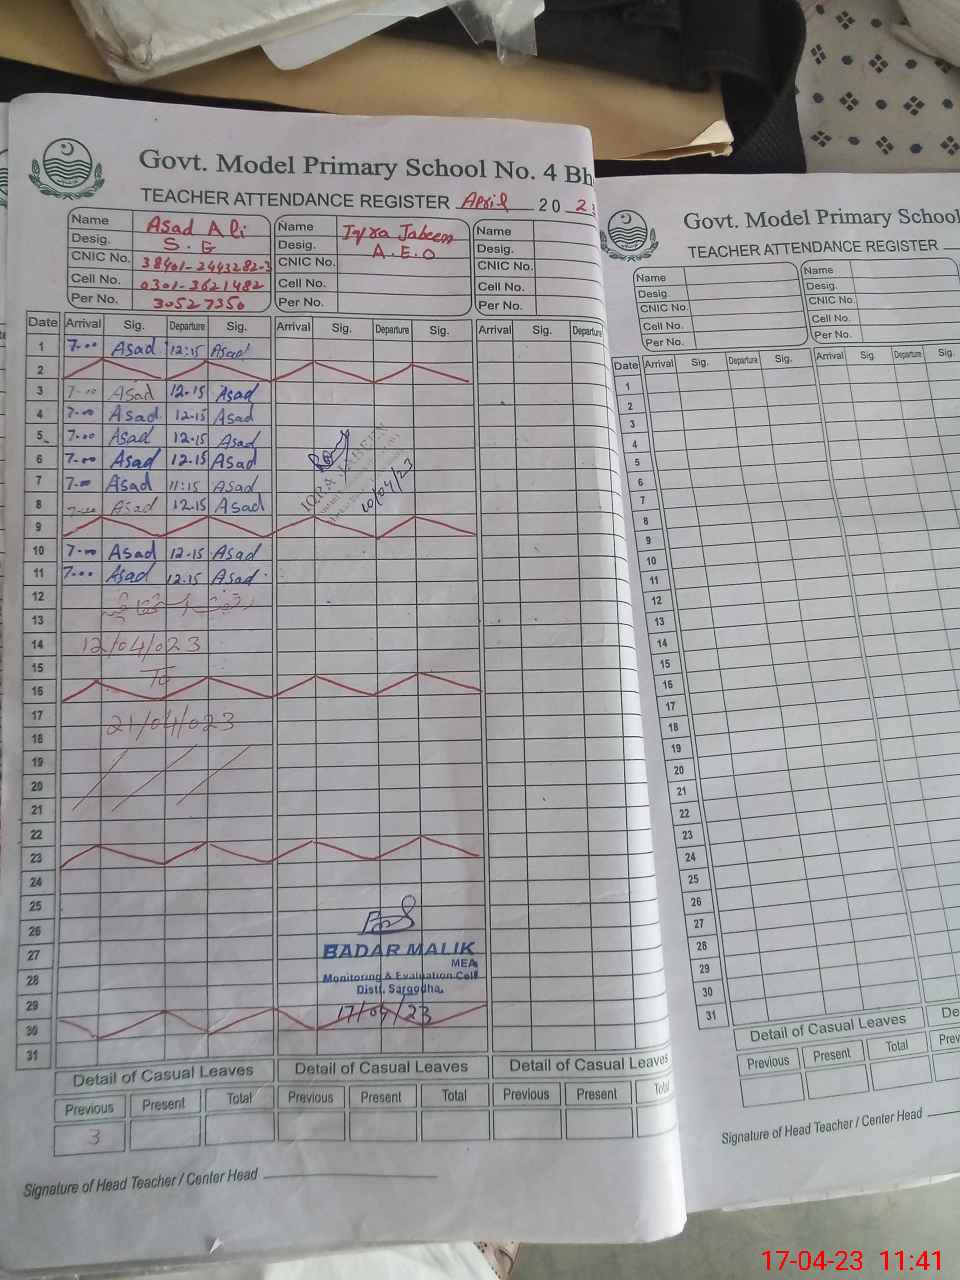 Govt. Model Primary School No. 4 Bh
TEACHER ATTENDANCE REGISTER April 20 23
Name Asad Ali
Desig. S.G
CNIC No. 38401-2443282-3
Cell No. 0301-3621482
Per No. 30527350
Name Iqra Jabeen
Desig. A.E.O
CNIC No.
Cell No.
Per No.
Name
Desig.
CNIC No.
Cell No.
Per No.
Date Arrival Sig. Departure Sig. Arrival Sig. Departure Sig. Arrival Sig. Departure
1 7-00 Asad 12:15 Asad
2
3 7-00 Asad 12.15 Asad
4 7-00 Asad 12.15 Asad
5 7-00 Asad 12.15 Asad
6 7-00 Asad 12.15 Asad
7 7-00 Asad 11:15 Asad
8 7-00 Asad 12.15 Asad
9
10 7-00 Asad 12.15 Asad
11 7-00 Asad 12.15 Asad
IQRA JABEEN
10/04/23
12
13
14 12/04/023
15 To
16
17 21/04/023
18
19
20
21
22
23
24
25
26
27 BADAR MALIK
MEA
28 Monitoring & Evaluation Cell
Distt. Sargodha.
29 17/04/23
30
31
Detail of Casual Leaves Detail of Casual Leaves Detail of Casual Leaves
Previous Present Total Previous Present Total Previous Present Total
3
Signature of Head Teacher / Center Head
Govt. Model Primary School
TEACHER ATTENDANCE REGISTER
Name
Desig
CNIC No.
Cell No.
Per No.
Name
Desig.
CNIC No.
Cell No.
Per No.
Date Arrival Sig. Departure Sig. Arrival Sig. Departure Sig.
1
2
3
4
5
6
7
8
9
10
11
12
13
14
15
16
17
18
19
20
21
22
23
24
25
26
27
28
29
30
31
Detail of Casual Leaves De
Previous Present Total Prev
Signature of Head Teacher / Center Head
17-04-23 11:41